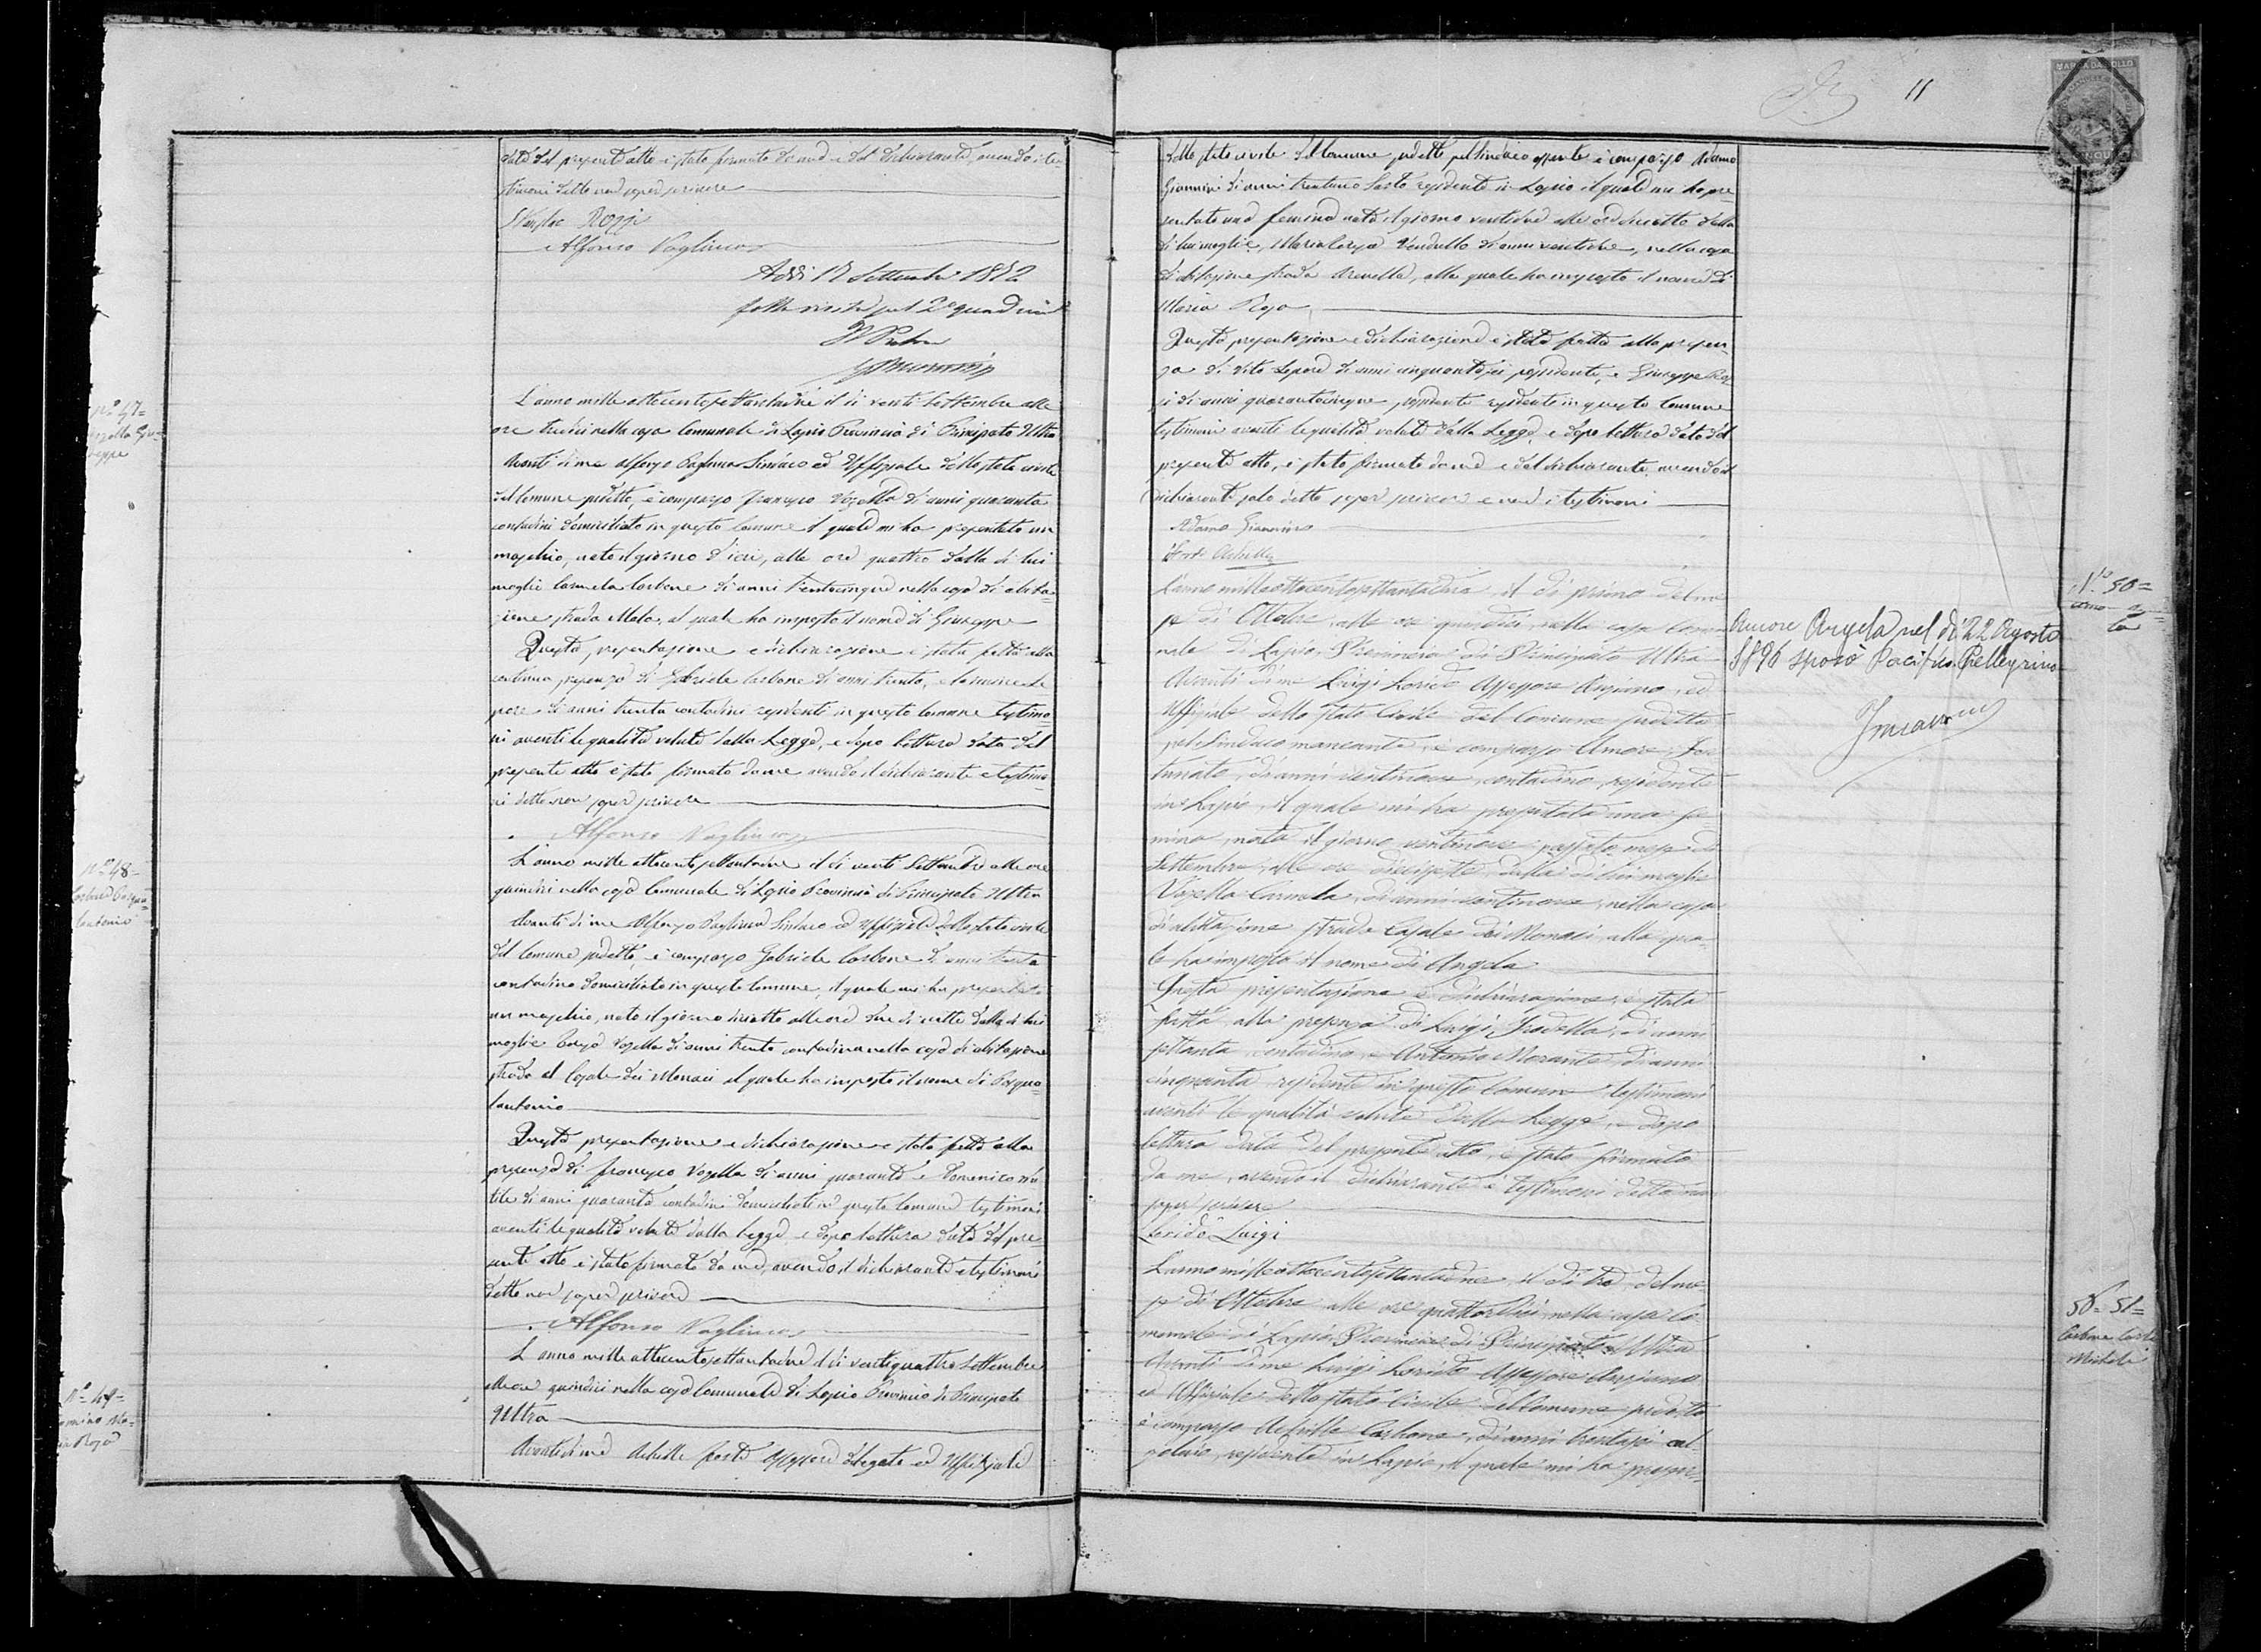 data del presente atto è stato firmato da me e dal dichiarante, avendo i te-
stimoni detto non saper scrivere
Rozzi
Alfonso Pagliuca
Addì 17 Settembre 1872
fatta visita pel 2° quadrim
Il Pretore
N.° 47=
Vozella Giu=
seppe
L'anno mille ottocentosettantadue il dì venti Settembre alle
ore tredici nella casa Comunale di Lapio Provincia di Principato Ultra
Avanti di me Alfonzo Pagliuca Sindaco ed Uffiziale dello stato civile
del Comune sudetto, è comparso Francesco Vozella di anni quaranta
contadini domiciliato in questo Comune il quale mi ha presentato un
maschio, nato il giorno d'ieri, alle ore quattro dalla di lui
moglie Carmela Carbone di anni trentacinque nella casa di abita=
zione strada Mele, al quale ha imposto il nome di Giuseppe
Questa presentazione e dichiarazione è stata fatta alla
continua presenza di Gabriele Carbone di anni trenta, e
pore di anni trenta contadini residenti in questo Comune testimo=
ni aventi le qualità volute dalla Legge, e dopo lettura data del
presente atto è stato firmato da me avendo il dichiarante e testimo=
ni detto non saper scrivere
Alfonso Pagliuca
N.° 48=
Carbone Pasqua=
lantonio
L'anno mille ottocentosettantadue il dì venti Settembre alle ore
quindici nella casa Comunale di Lapio Provincia di Principato Ultra
Avanti di me Alfonzo Pagliuca Sindaco ed Uffiziale dello stato civile
del Comune sudetto, è comparso Gabriele Carbone di anni trenta
contadino domiciliato in questo Comune, il quale mi ha presentato
un maschio, nato il giorno diciotto alle ore due di notte dalla di lui
moglie Vozella di anni trenta contadina nella casa di abitazione
strada al Casale dei Monaci al quale ha imposto il nome di Pasqua=
lantonio
Questa presentazione e dichiarazione è stata fatta alla
presenza di Francesco Vozella di anni quaranta e Domenico
di anni quaranta contadini domiciliati in questo Comune testimoni
aventi le qualità volute dalla Legge e dopo lettura data del pre=
sente atto è stato firmato da me, avendo il dichiarante e testimoni
detto non saper scrivere
Alfonso Pagliuca
N.° 49=
L'anno mille ottocentosettantadue il dì ventiquattro Settembre
alle ore quindici nella casa Comunale di Lapio Provincia di Principato
Ultra
Avanti di me Achille Forte Assessore delegato ed Uffiziale
11
MARCA DA BOLLO
dello stato civile del Comune sudetto pel Sindaco assente è comparso Adamo
Giannino di anni trentuno Sarto residente in Lapio il quale mi ha pre=
sentato una femina nata il giorno ventidue alle ore diciotto dalla
di lui moglie, Maria Vendulla di anni ventitre, nella casa
di abitazione strada, alla quale ha imposto il nome di
Maria Rosa
Questa presentazione e dichiarazione è stata fatta alla presen=
za di Vito Lepore di anni cinquantasei possidente, e Giuseppe
di anni quarantacinque possidente residenti in questo Comune
testimoni aventi le qualità volute dalla Legge, e dopo lettura data del
presente atto, è stato firmato da me e dal dichiarante, avendo il
dichiarante solo detto saper scrivere e non i testimoni
Adamo Giannino
Forte Achille
N.° 50=
L'anno milleottocentosettantadue, il dì primo del me=
se di Ottobre, alle ore quindici, nella casa Comu=
nale di Lapio, Provincia di Principato Ultra
Avanti di me Luigi Lorido Assessore Anziano, ed
Uffiziale dello stato Civile del Comune sudetto
pel Sindaco mancante, è comparso Amore For
tunato, di anni ventinove, contadino, residente
in Lapio, il quale mi ha presentata una fe
mina, nata il giorno ventinove, passato mese di
Settembre, alle ore diecisette, dalla di lui moglie
Vozella Carmela, di anni ventinove, nella casa
di abitazione strada Casale dei Monaci, alla qua=
le ha imposto il nome di Angela
Questa presentazione e dichiarazione, è stata
fatta alla presenza di Luigi, di anni
settanta, contadino, e Antonio Morante, di anni
cinquanta, residenti in questo Comune, testimoni
aventi le qualità volute dalla Legge, e dopo
lettura data del presente atto, è stato firmato
da me, avendo il dichiarante e testimoni detto non
saper scrivere
Lorido Luigi
Amore Angela nel dì 22 Agosto
1896 sposò Pacifico Pellegrino
N.° 51=
Carbone
Michele
L'anno milleottocentosettantadue, il dì tre, del me=
se di Ottobre alle ore quattordici, nella casa Co=
munale di Lapio, Provincia di Principato Ultra
Avanti di me Luigi Lorido Assessore Anziano
ed Uffiziale dello stato Civile del Comune sudetto
è comparso Achille Carbone, di anni trentasei cal=
zolaio, residente in Lapio, il quale mi ha presen=